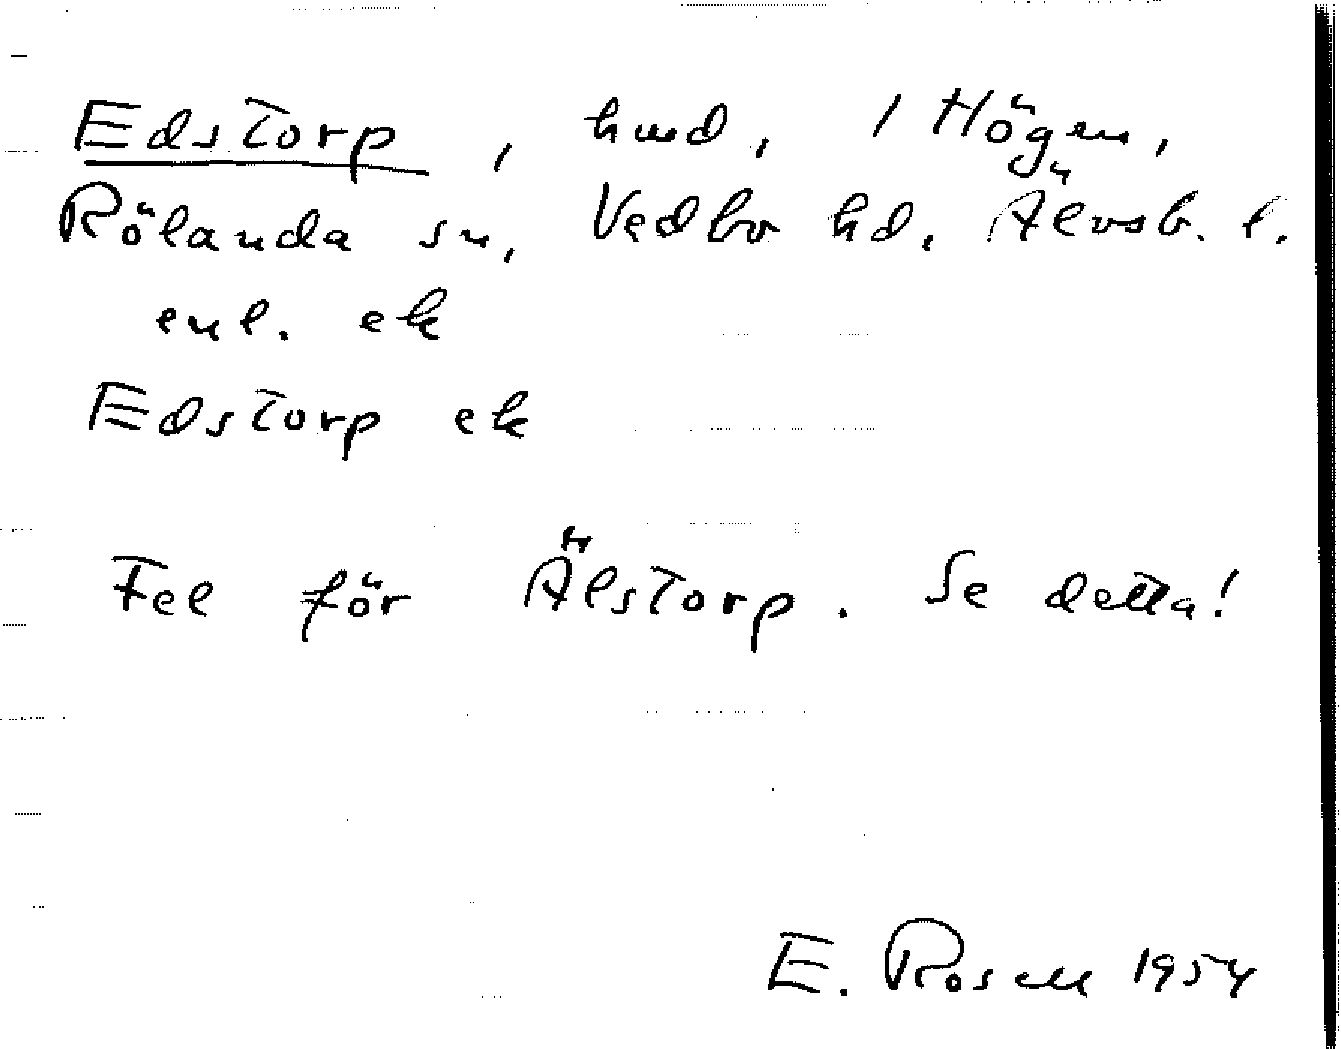 Edstorp, hmd, / Högen,
Rölanda sn, Vedbo hd, Älvsb. l.
enl. ek
Edstorp ek
Fel för Älstorp. Se detta!
E. Rosell 1954